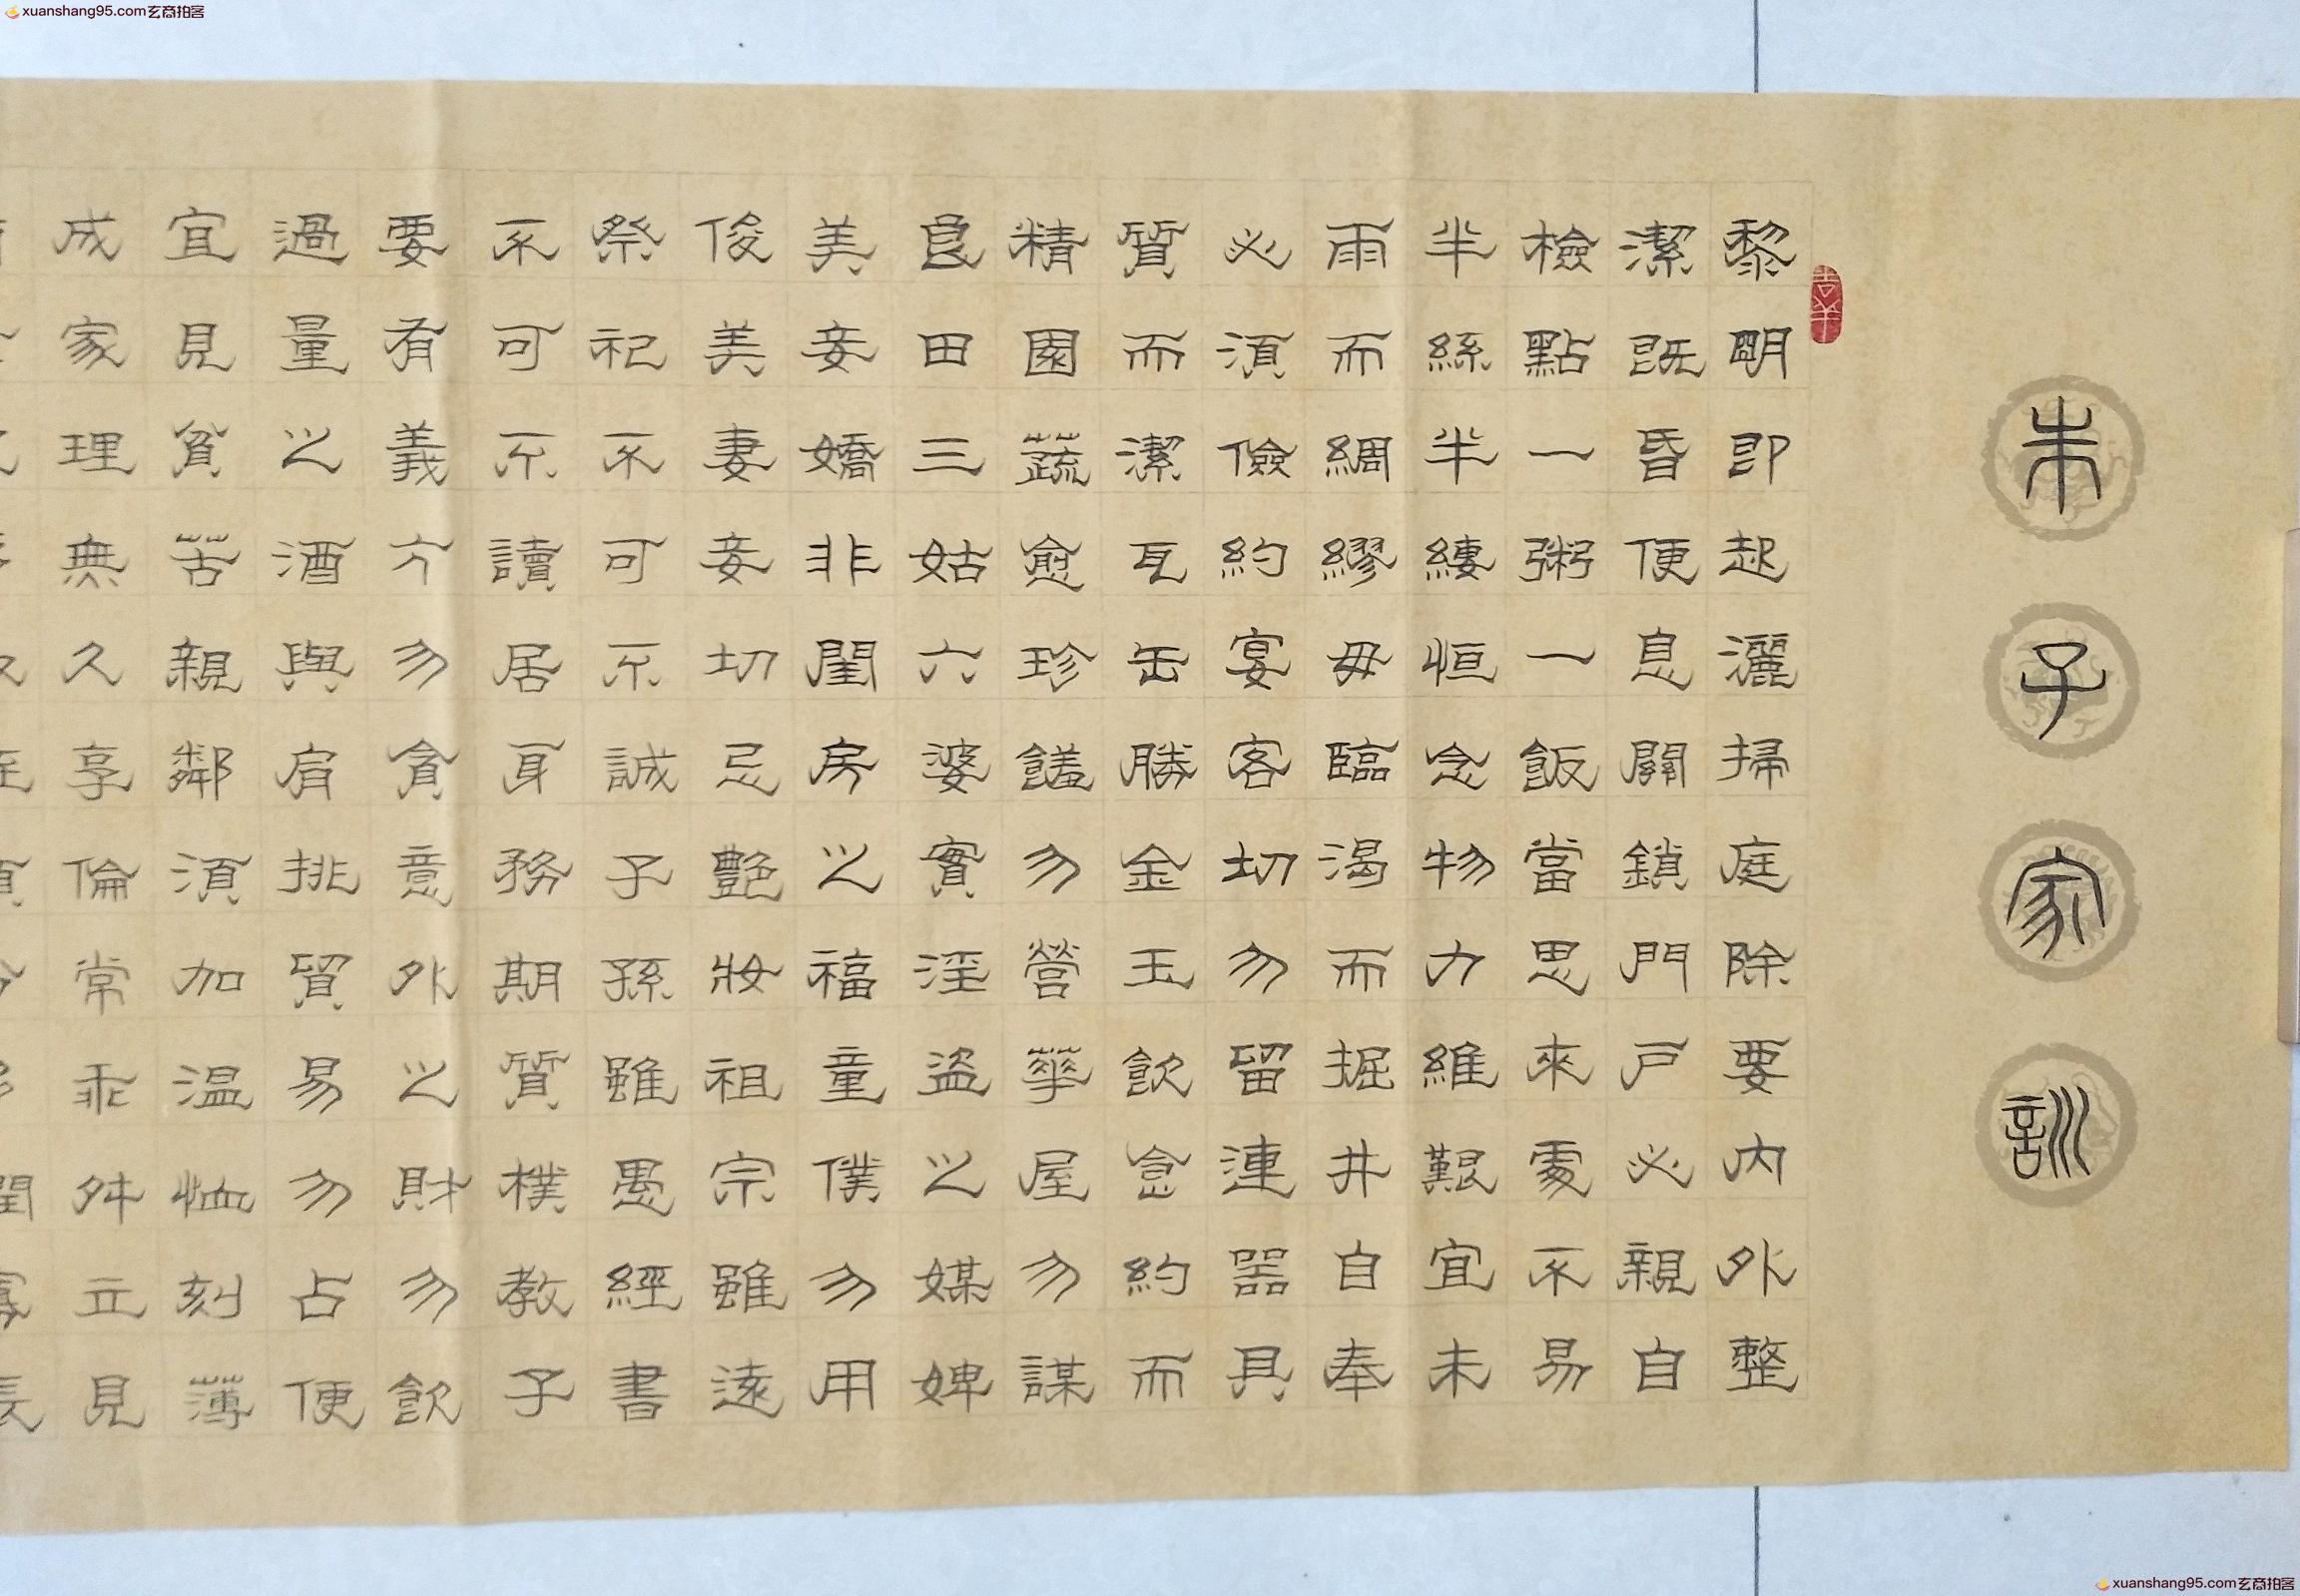 xuanshang95.com玄商拍客
朱子家訓
吉羊
黎明即起灑掃庭除要內外整
潔既昏便息關鎖門戶必親自
檢點一粥一飯當思來處不易
半絲半縷恒念物力維艱宜未
雨而綢繆毋臨渴而掘井自奉
必須儉約宴客切勿留連器具
質而潔瓦缶勝金玉飲食約而
精園蔬愈珍饈勿營華屋勿謀
良田三姑六婆實淫盜之媒婢
美妾嬌非閨房之福童僕勿用
俊美妻妾切忌艷妝祖宗雖遠
祭祀不可不誠子孫雖愚經書
不可不讀居身務期質樸教子
要有義方勿貪意外之財勿飲
過量之酒與肩挑貿易勿占便
宜見貧苦親鄰須加温恤刻薄
成家理無久享倫常乖舛立見
xuanshang95.com玄商拍客